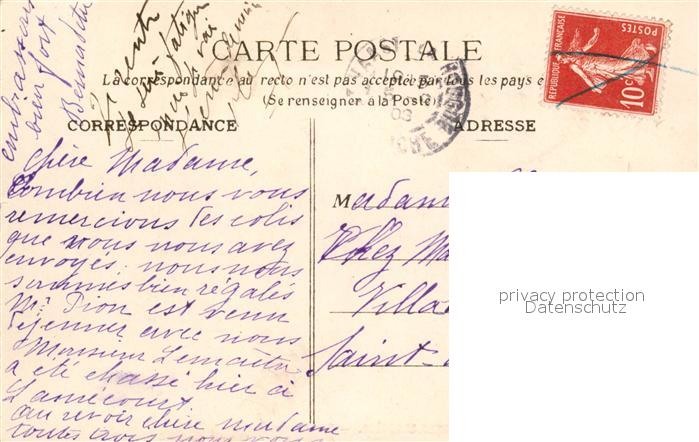 CARTE POSTALE
La correspondance au recto n'est pas acceptée par tous les pays e
(Se renseigner à la Poste)
CORRESPONDANCE
ADRESSE
REPUBLIQUE FRANÇAISE
POSTES
10
Chère Madame,
Combien nous vous
remercions des colis
que vous nous avez
envoyés. nous nous
sommes bien régalés
Mr Dion est venu
déjeuner avec nous
Monsieur Lemaitre
a été chassé hier à
au revoir chère madame
toutes trois nous vous
embrassons
bien fort
Bernadette
Madam
Chez Ma
Villa
Saint-
privacy protection
Datenschutz